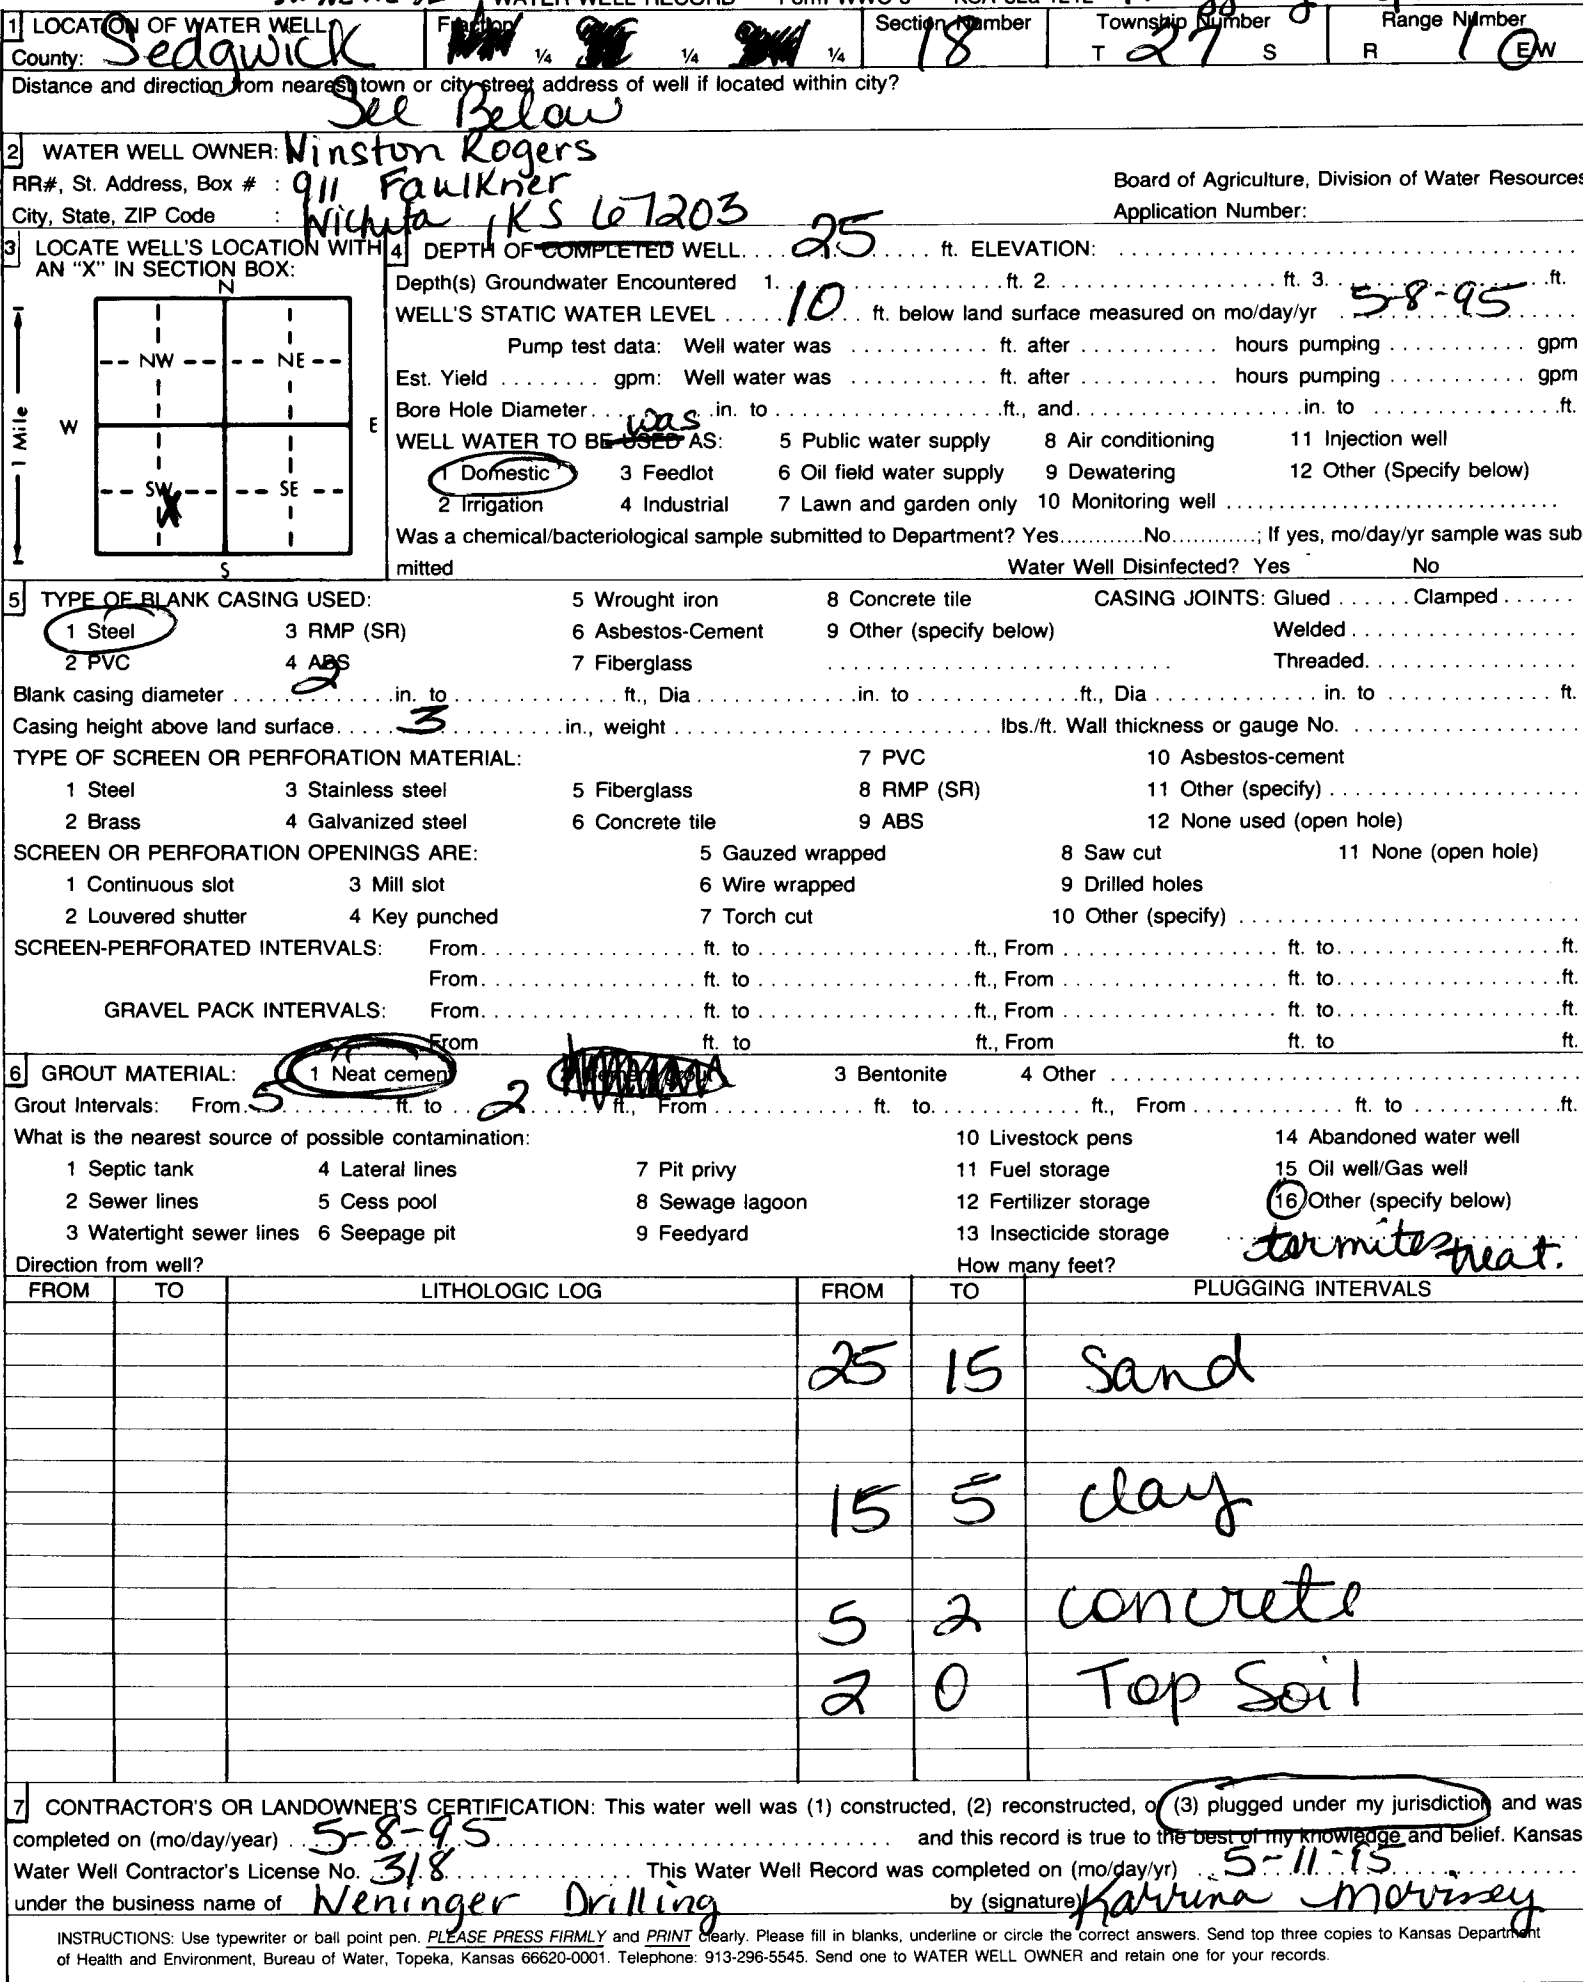 WATER WELL RECORD Form WWC-5 KSA 82a-1212
1 LOCATION OF WATER WELL: Fraction Section Number Township Number Range Number
County: Sedgwick ¼ ¼ ¼ 18 T 27 S R 1 E/W
Distance and direction from nearest town or city street address of well if located within city?
See Below
2 WATER WELL OWNER: Winston Rogers
RR#, St. Address, Box # : 911 Faulkner Board of Agriculture, Division of Water Resources
City, State, ZIP Code : Wichita, KS 67203 Application Number:
3 LOCATE WELL'S LOCATION WITH AN "X" IN SECTION BOX:
N
NW NE
W E
SW X SE
S
1 Mile
4 DEPTH OF COMPLETED WELL.... 25 ft. ELEVATION:
Depth(s) Groundwater Encountered 1. ft. 2. ft. 3. ft.
WELL'S STATIC WATER LEVEL 10 ft. below land surface measured on mo/day/yr 5-8-95
Pump test data: Well water was ft. after hours pumping gpm
Est. Yield gpm: Well water was ft. after hours pumping gpm
Bore Hole Diameter in. to ft., and in. to ft.
WELL WATER TO BE USED was AS: 5 Public water supply 8 Air conditioning 11 Injection well
1 Domestic 3 Feedlot 6 Oil field water supply 9 Dewatering 12 Other (Specify below)
2 Irrigation 4 Industrial 7 Lawn and garden only 10 Monitoring well
Was a chemical/bacteriological sample submitted to Department? Yes No ; If yes, mo/day/yr sample was sub
mitted Water Well Disinfected? Yes No
5 TYPE OF BLANK CASING USED: 5 Wrought iron 8 Concrete tile CASING JOINTS: Glued Clamped
1 Steel 3 RMP (SR) 6 Asbestos-Cement 9 Other (specify below) Welded
2 PVC 4 ABS 7 Fiberglass Threaded
Blank casing diameter 2 in. to ft., Dia in. to ft., Dia in. to ft.
Casing height above land surface 3 in., weight lbs./ft. Wall thickness or gauge No.
TYPE OF SCREEN OR PERFORATION MATERIAL: 7 PVC 10 Asbestos-cement
1 Steel 3 Stainless steel 5 Fiberglass 8 RMP (SR) 11 Other (specify)
2 Brass 4 Galvanized steel 6 Concrete tile 9 ABS 12 None used (open hole)
SCREEN OR PERFORATION OPENINGS ARE: 5 Gauzed wrapped 8 Saw cut 11 None (open hole)
1 Continuous slot 3 Mill slot 6 Wire wrapped 9 Drilled holes
2 Louvered shutter 4 Key punched 7 Torch cut 10 Other (specify)
SCREEN-PERFORATED INTERVALS: From ft. to ft., From ft. to ft.
From ft. to ft., From ft. to ft.
GRAVEL PACK INTERVALS: From ft. to ft., From ft. to ft.
From ft. to ft., From ft. to ft.
6 GROUT MATERIAL: 1 Neat cement 3 Bentonite 4 Other
Grout Intervals: From 5 ft. to 2 ft., From ft. to ft., From ft. to ft.
What is the nearest source of possible contamination: 10 Livestock pens 14 Abandoned water well
1 Septic tank 4 Lateral lines 7 Pit privy 11 Fuel storage 15 Oil well/Gas well
2 Sewer lines 5 Cess pool 8 Sewage lagoon 12 Fertilizer storage 16 Other (specify below)
3 Watertight sewer lines 6 Seepage pit 9 Feedyard 13 Insecticide storage termites treat.
Direction from well? How many feet?
FROM TO LITHOLOGIC LOG FROM TO PLUGGING INTERVALS
25 15 Sand
15 5 clay
5 2 concrete
2 0 Top Soil
7 CONTRACTOR'S OR LANDOWNER'S CERTIFICATION: This water well was (1) constructed, (2) reconstructed, or (3) plugged under my jurisdiction and was
completed on (mo/day/year) 5-8-95 and this record is true to the best of my knowledge and belief. Kansas
Water Well Contractor's License No. 318 This Water Well Record was completed on (mo/day/yr) 5-11-95
under the business name of Weninger Drilling by (signature) Karrina Morrissey
INSTRUCTIONS: Use typewriter or ball point pen. PLEASE PRESS FIRMLY and PRINT clearly. Please fill in blanks, underline or circle the correct answers. Send top three copies to Kansas Department
of Health and Environment, Bureau of Water, Topeka, Kansas 66620-0001. Telephone: 913-296-5545. Send one to WATER WELL OWNER and retain one for your records.